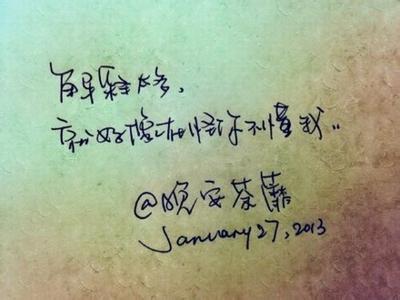 解释太多，
就好像在怪你不懂我..
@晚安荼蘼
January 27, 2013